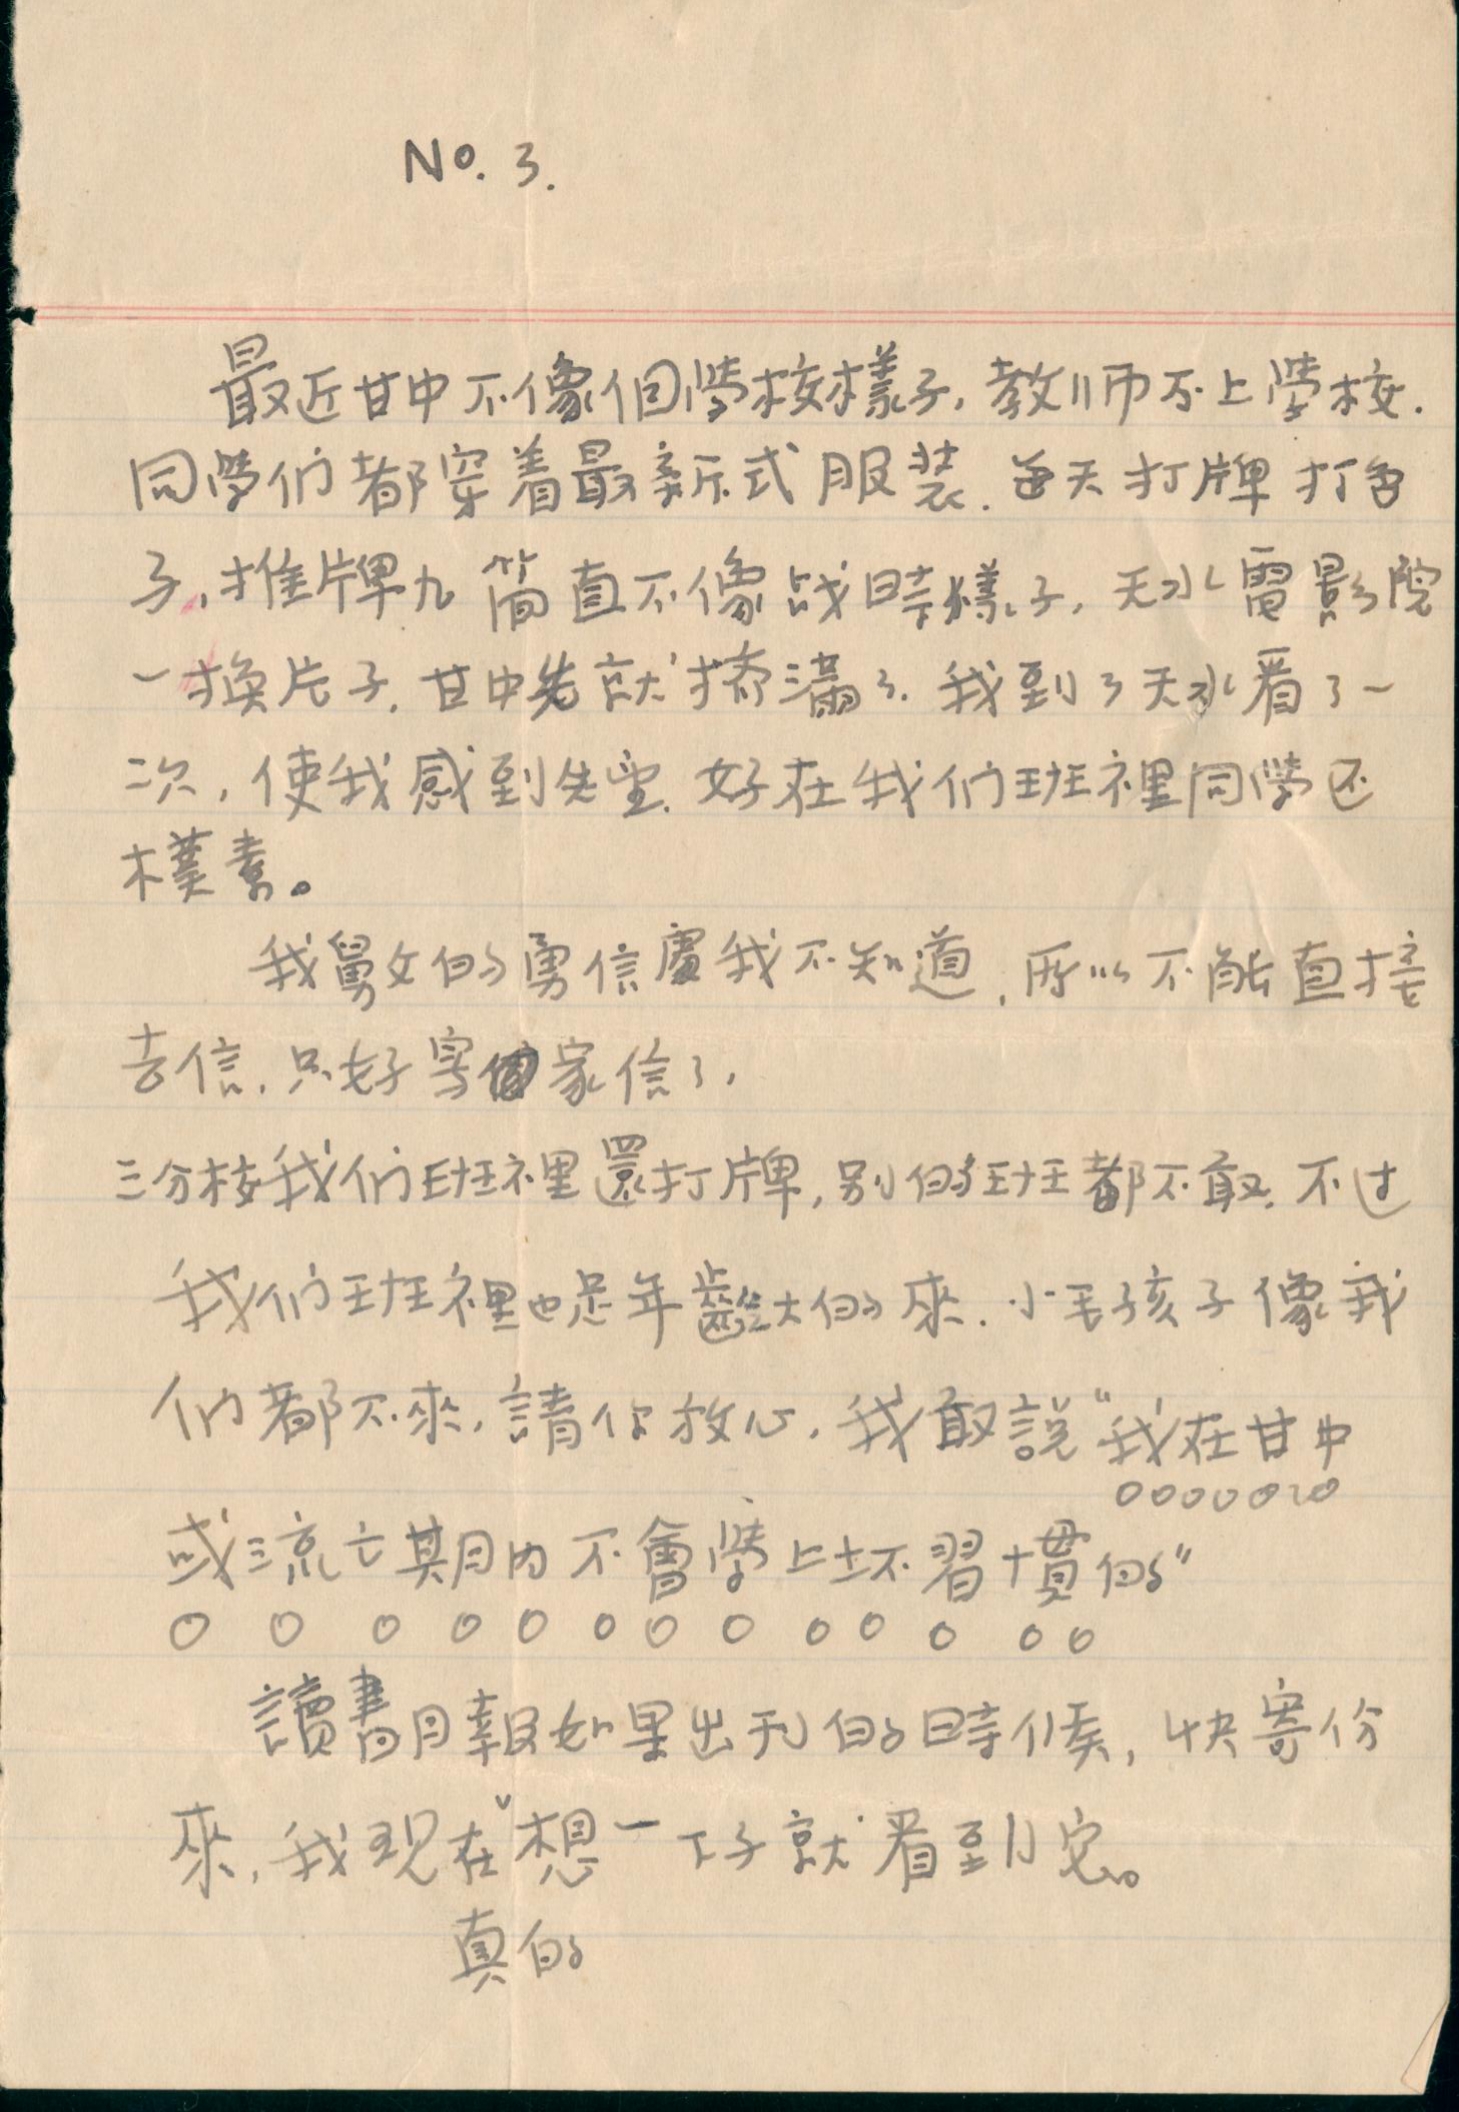 No. 3.
最近甘中不像個學校樣子，教师不上學校．
同學们都穿着最新式服装．每天打牌打色
子，推牌九简直不像战時樣子，天水電影院
一换片子．甘中先就挤滿了．我到了天水看了一
次，使我感到失望．好在我们班裡同學还
樸素。
我舅父的勇信處我不知道，所以不能直接
去信．只好寫個家信了，
三分校我们班裡還打牌，别的班都不敢．不过
我们班裡也是年齡大的來．小毛孩子像我
们都不來，請你放心，我敢説“我在甘中
或流亡期内不會學上坏習慣的”
讀書月報如果出刊的時候，快寄份
來，我现在想一下子就看到它。
真的